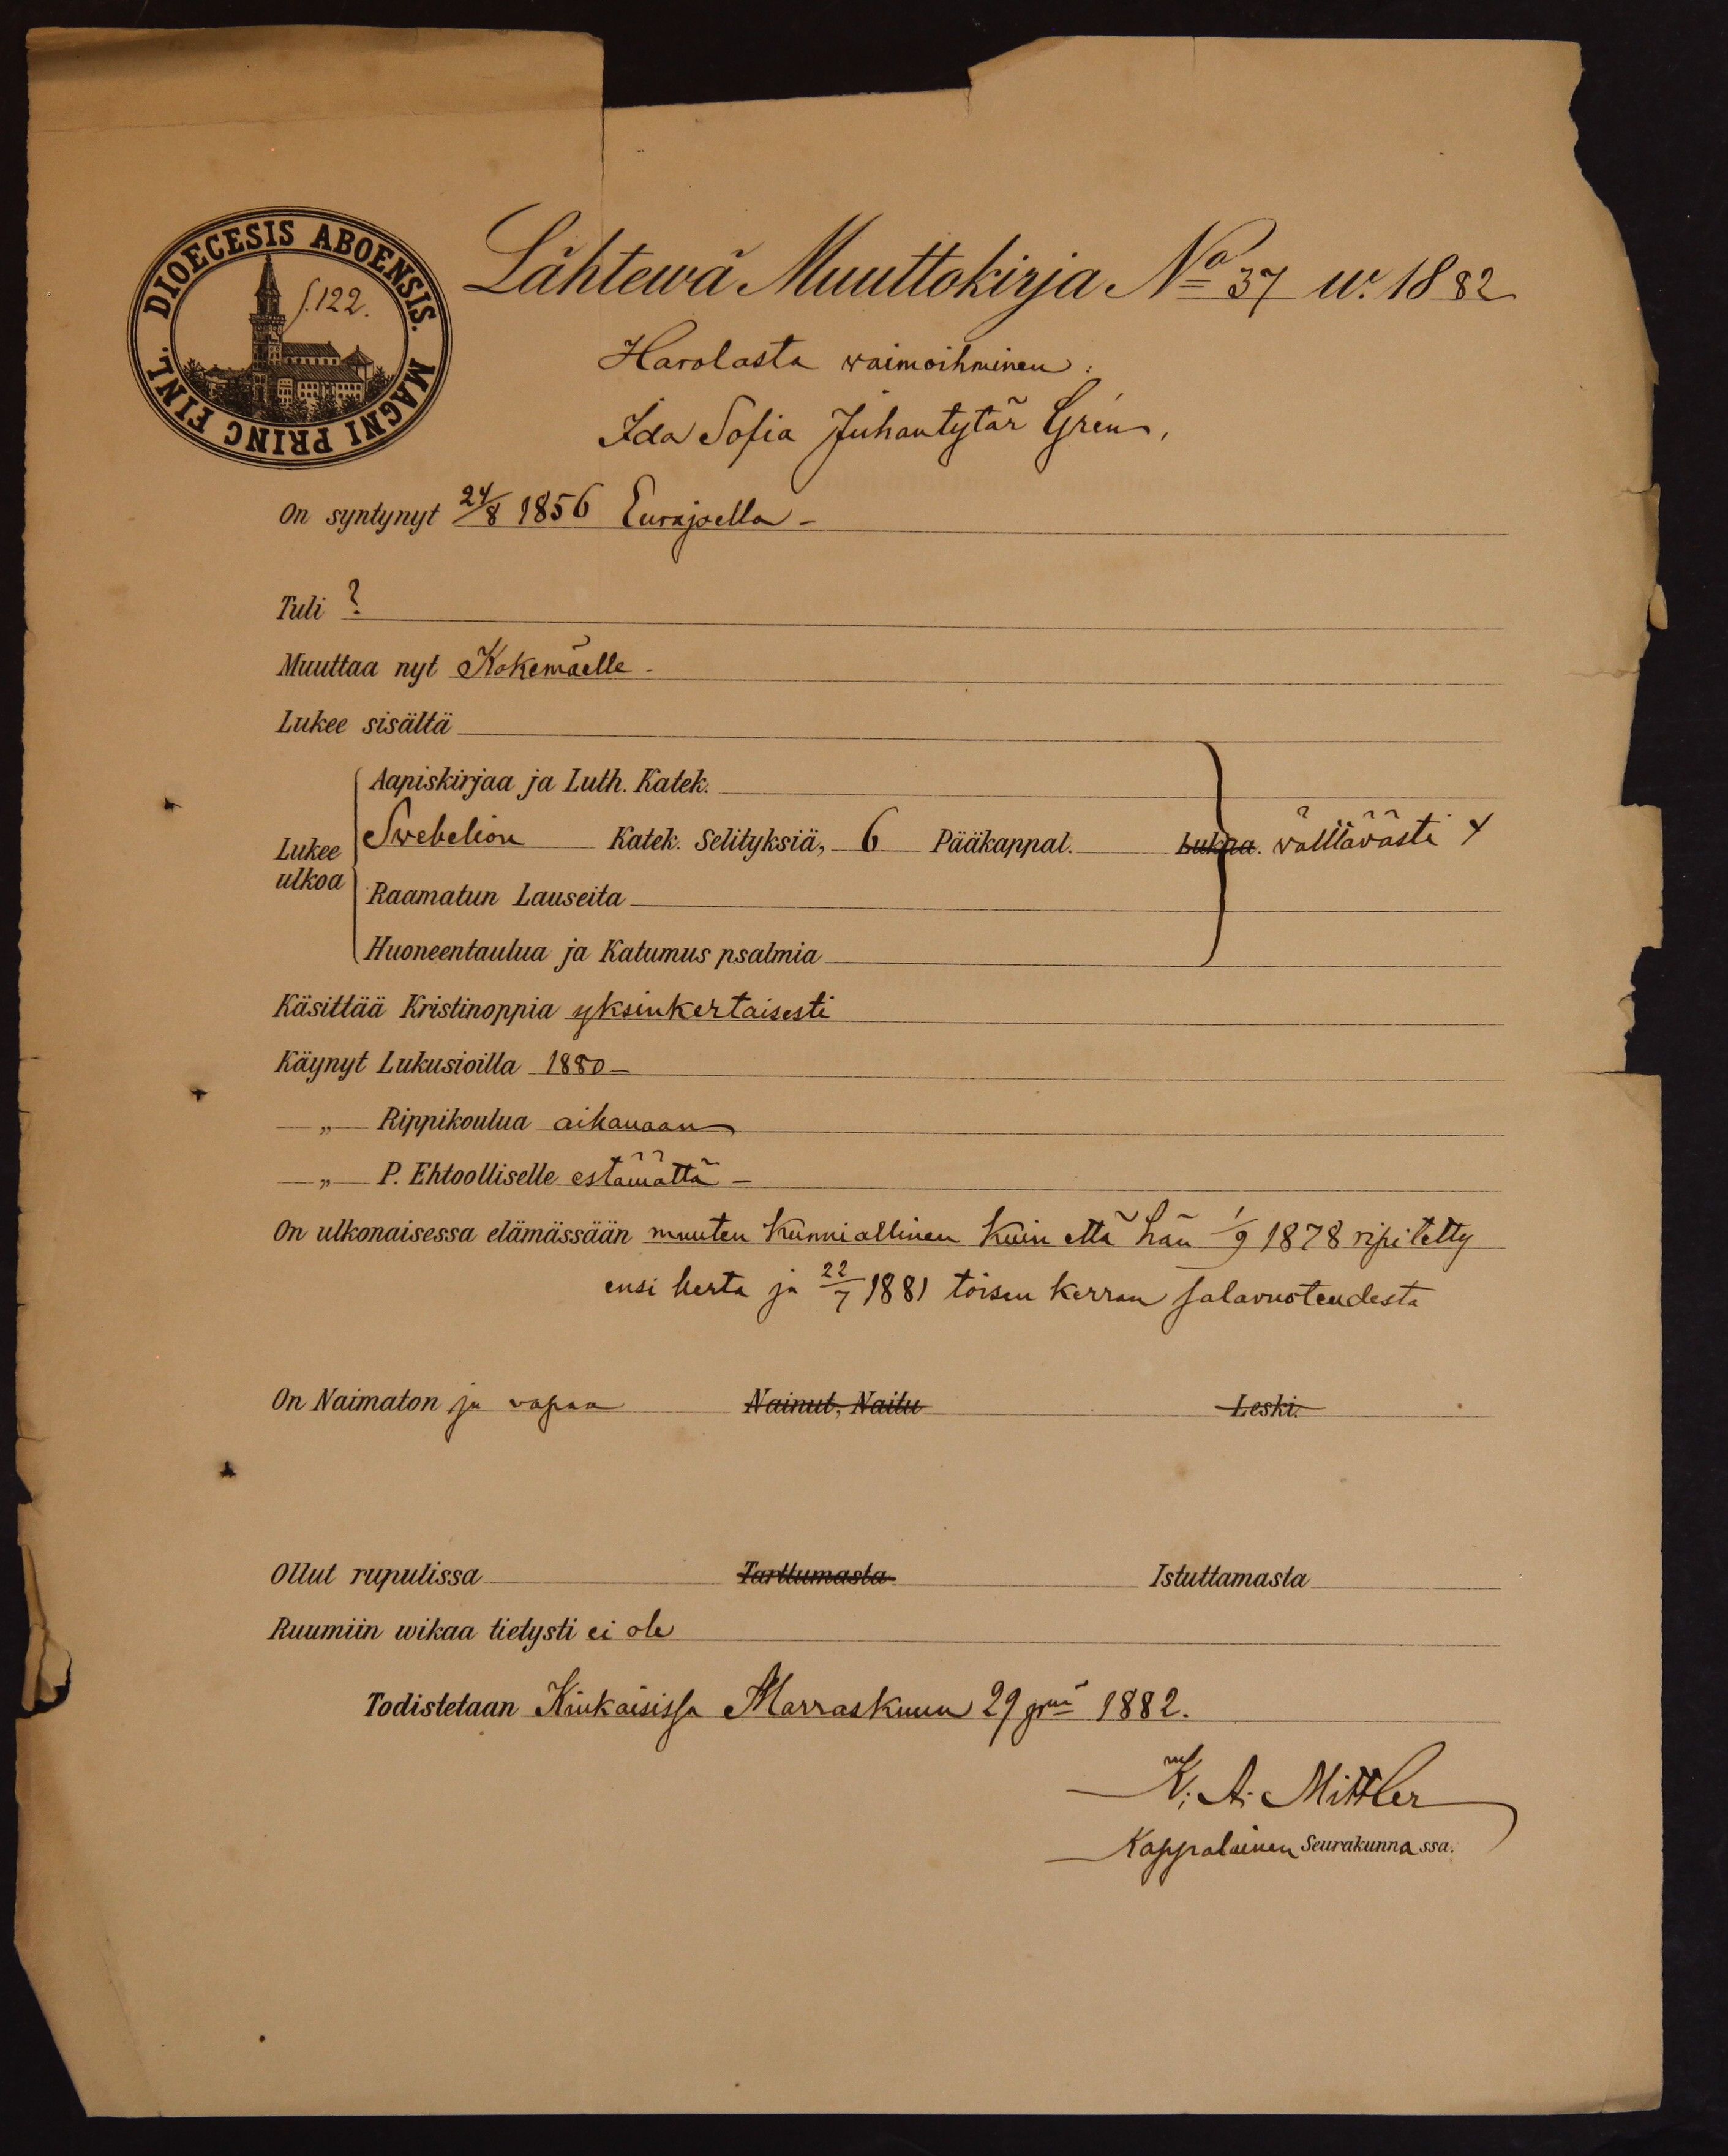 DIOECESIS ABOENSIS. MAGNI PRINC FINL.
S.122.
Lähtewä Muuttokirja No 37 w. 1882
Harolasta waimoihminen:
Ida Sofia Juhantytär Grén,
On syntynyt 24/8 1856 Eurajoella -
Tuli ?
Muuttaa nyt Kokemäelle -
Lukee sisältä
Aapiskirjaa ja Luth. Katek.
Lukee ulkoa Swebelion Katek. Selityksiä, 6 Pääkappal. Lukua. välttävästi
Raamatun Lauseita
Huoneentaulua ja Katumus psalmia
Käsittää Kristinoppia yksinkertaisesti
Käynyt Lukusioilla 1880 -
— „ — Rippikoulua aikanaan
— „ — P. Ehtoolliselle estämättä -
On ulkonaisessa elämässään muuten kunniallinen kuin että hän 1/9 1878 ripitetty
ensi kerta ja 22/7 1881 toisen kerran salavuoteudesta
On Naimaton ja vapaa Nainut, Naitu Leski.
Ollut rupulissa Tarttumasta Istuttamasta
Ruumiin wikaa tietysti ei ole
Todistetaan Kiukaisissa Marraskuun 29 pnä 1882.
K. A. Mittler
Kappalainen Seurakunnassa.